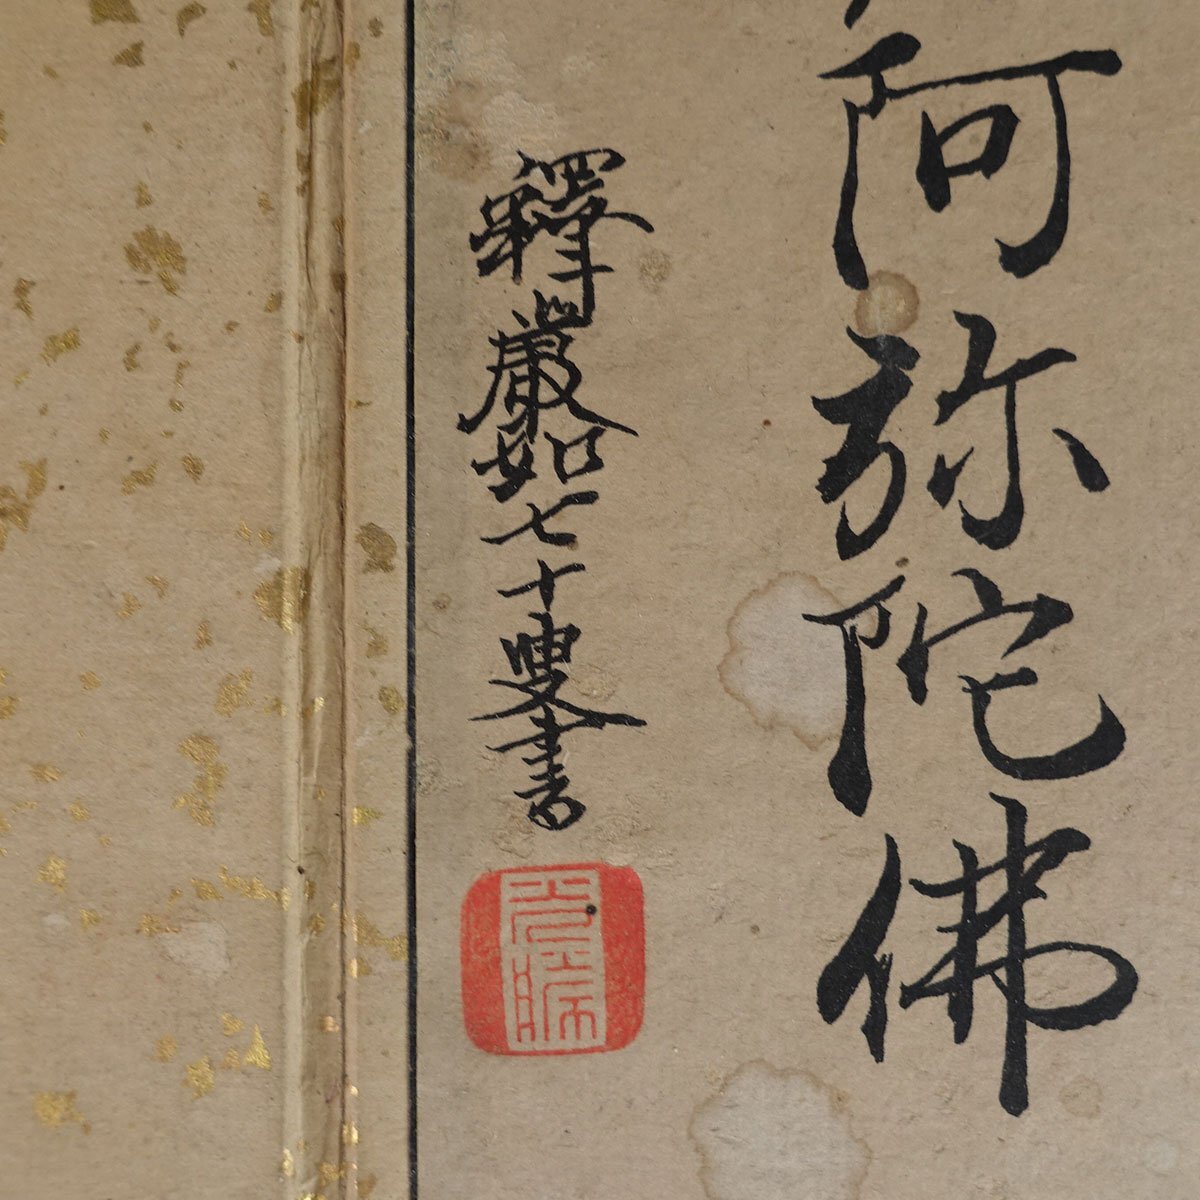 阿弥陀佛
釋嚴如七十叟書